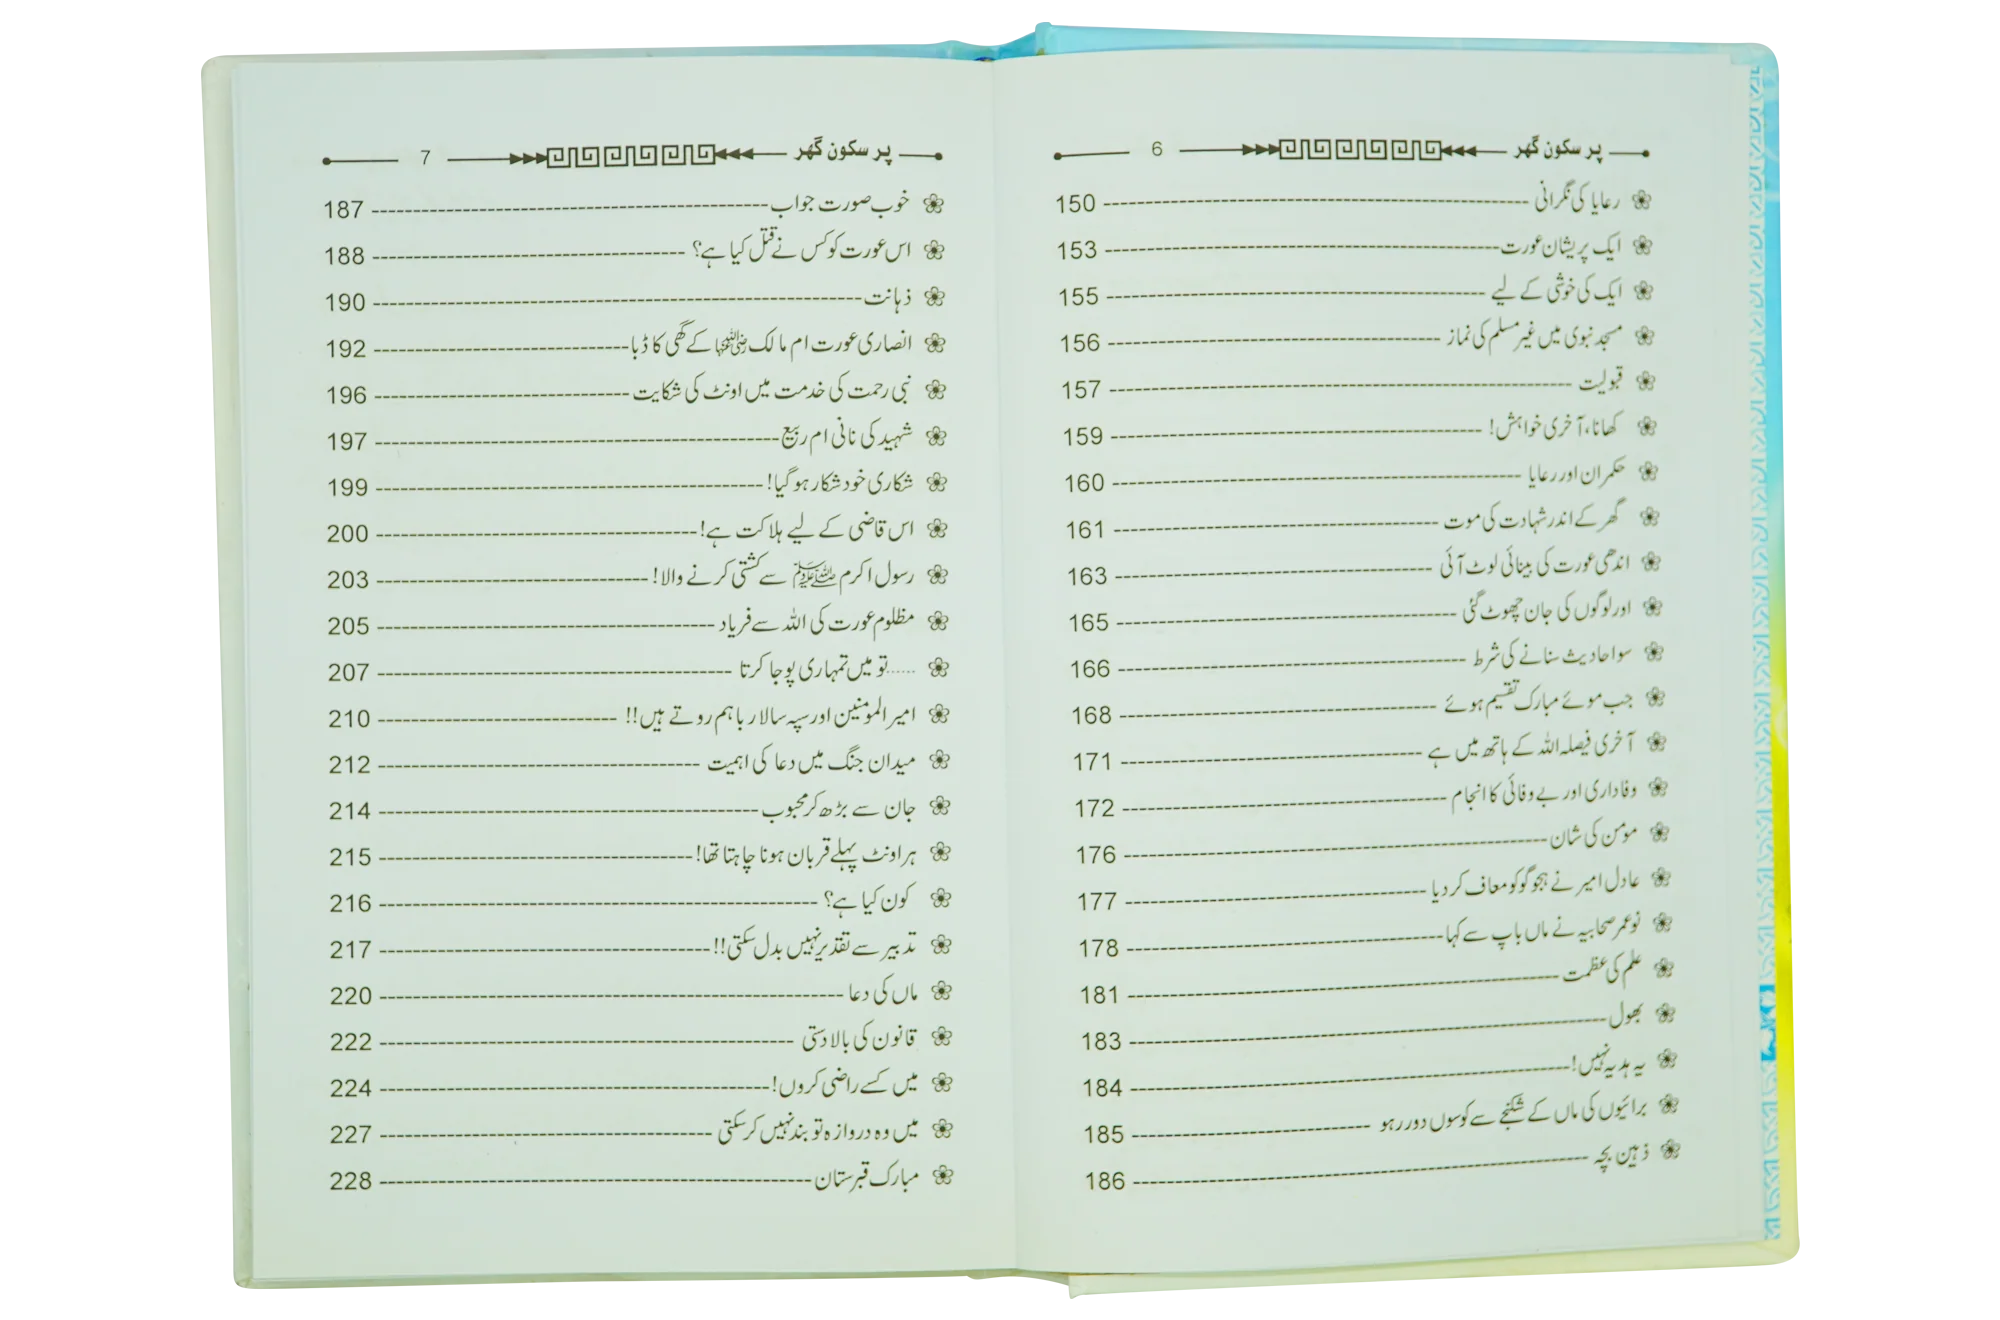 پر سکون گھر 6
رعایا کی نگرانی 150
ایک پریشان عورت 153
ایک کی خوشی کے لیے 155
مسجد نبوی میں غیر مسلم کی نماز 156
قبولیت 157
کھانا، آخری خواہش! 159
حکمران اور رعایا 160
گھر کے اندر شہادت کی موت 161
اندھی عورت کی بینائی لوٹ آئی 163
اور لوگوں کی جان چھوٹ گئی 165
سو احادیث سنانے کی شرط 166
جب موئے مبارک تقسیم ہوئے 168
آخری فیصلہ اللہ کے ہاتھ میں ہے 171
وفاداری اور بے وفائی کا انجام 172
مومن کی شان 176
عادل امیر نے ہجو گو کو معاف کر دیا 177
نو عمر صحابیہ نے ماں باپ سے کہا 178
علم کی عظمت 181
بھول 183
یہ ہدیہ نہیں! 184
برائیوں کی ماں کے شکنجے سے کوسوں دور رہو 185
ذہین بچہ 186
پر سکون گھر 7
خوب صورت جواب 187
اس عورت کو کس نے قتل کیا ہے؟ 188
ذہانت 190
انصاری عورت ام مالک رضی اللہ عنہا کے گھی کا ڈبا 192
نبی رحمت کی خدمت میں اونٹ کی شکایت 196
شہید کی نانی ام ربیع 197
شکاری خود شکار ہو گیا! 199
اس قاضی کے لیے ہلاکت ہے! 200
رسول اکرم ﷺ سے کشتی کرنے والا! 203
مظلوم عورت کی اللہ سے فریاد 205
......تو میں تمہاری پوجا کرتا 207
امیر المومنین اور سپہ سالار باہم روتے ہیں!! 210
میدان جنگ میں دعا کی اہمیت 212
جان سے بڑھ کر محبوب 214
ہر اونٹ پہلے قربان ہونا چاہتا تھا! 215
کون کیا ہے؟ 216
تدبیر سے تقدیر نہیں بدل سکتی!! 217
ماں کی دعا 220
قانون کی بالا دستی 222
میں کسے راضی کروں! 224
میں وہ دروازہ تو بند نہیں کر سکتی 227
مبارک قبرستان 228